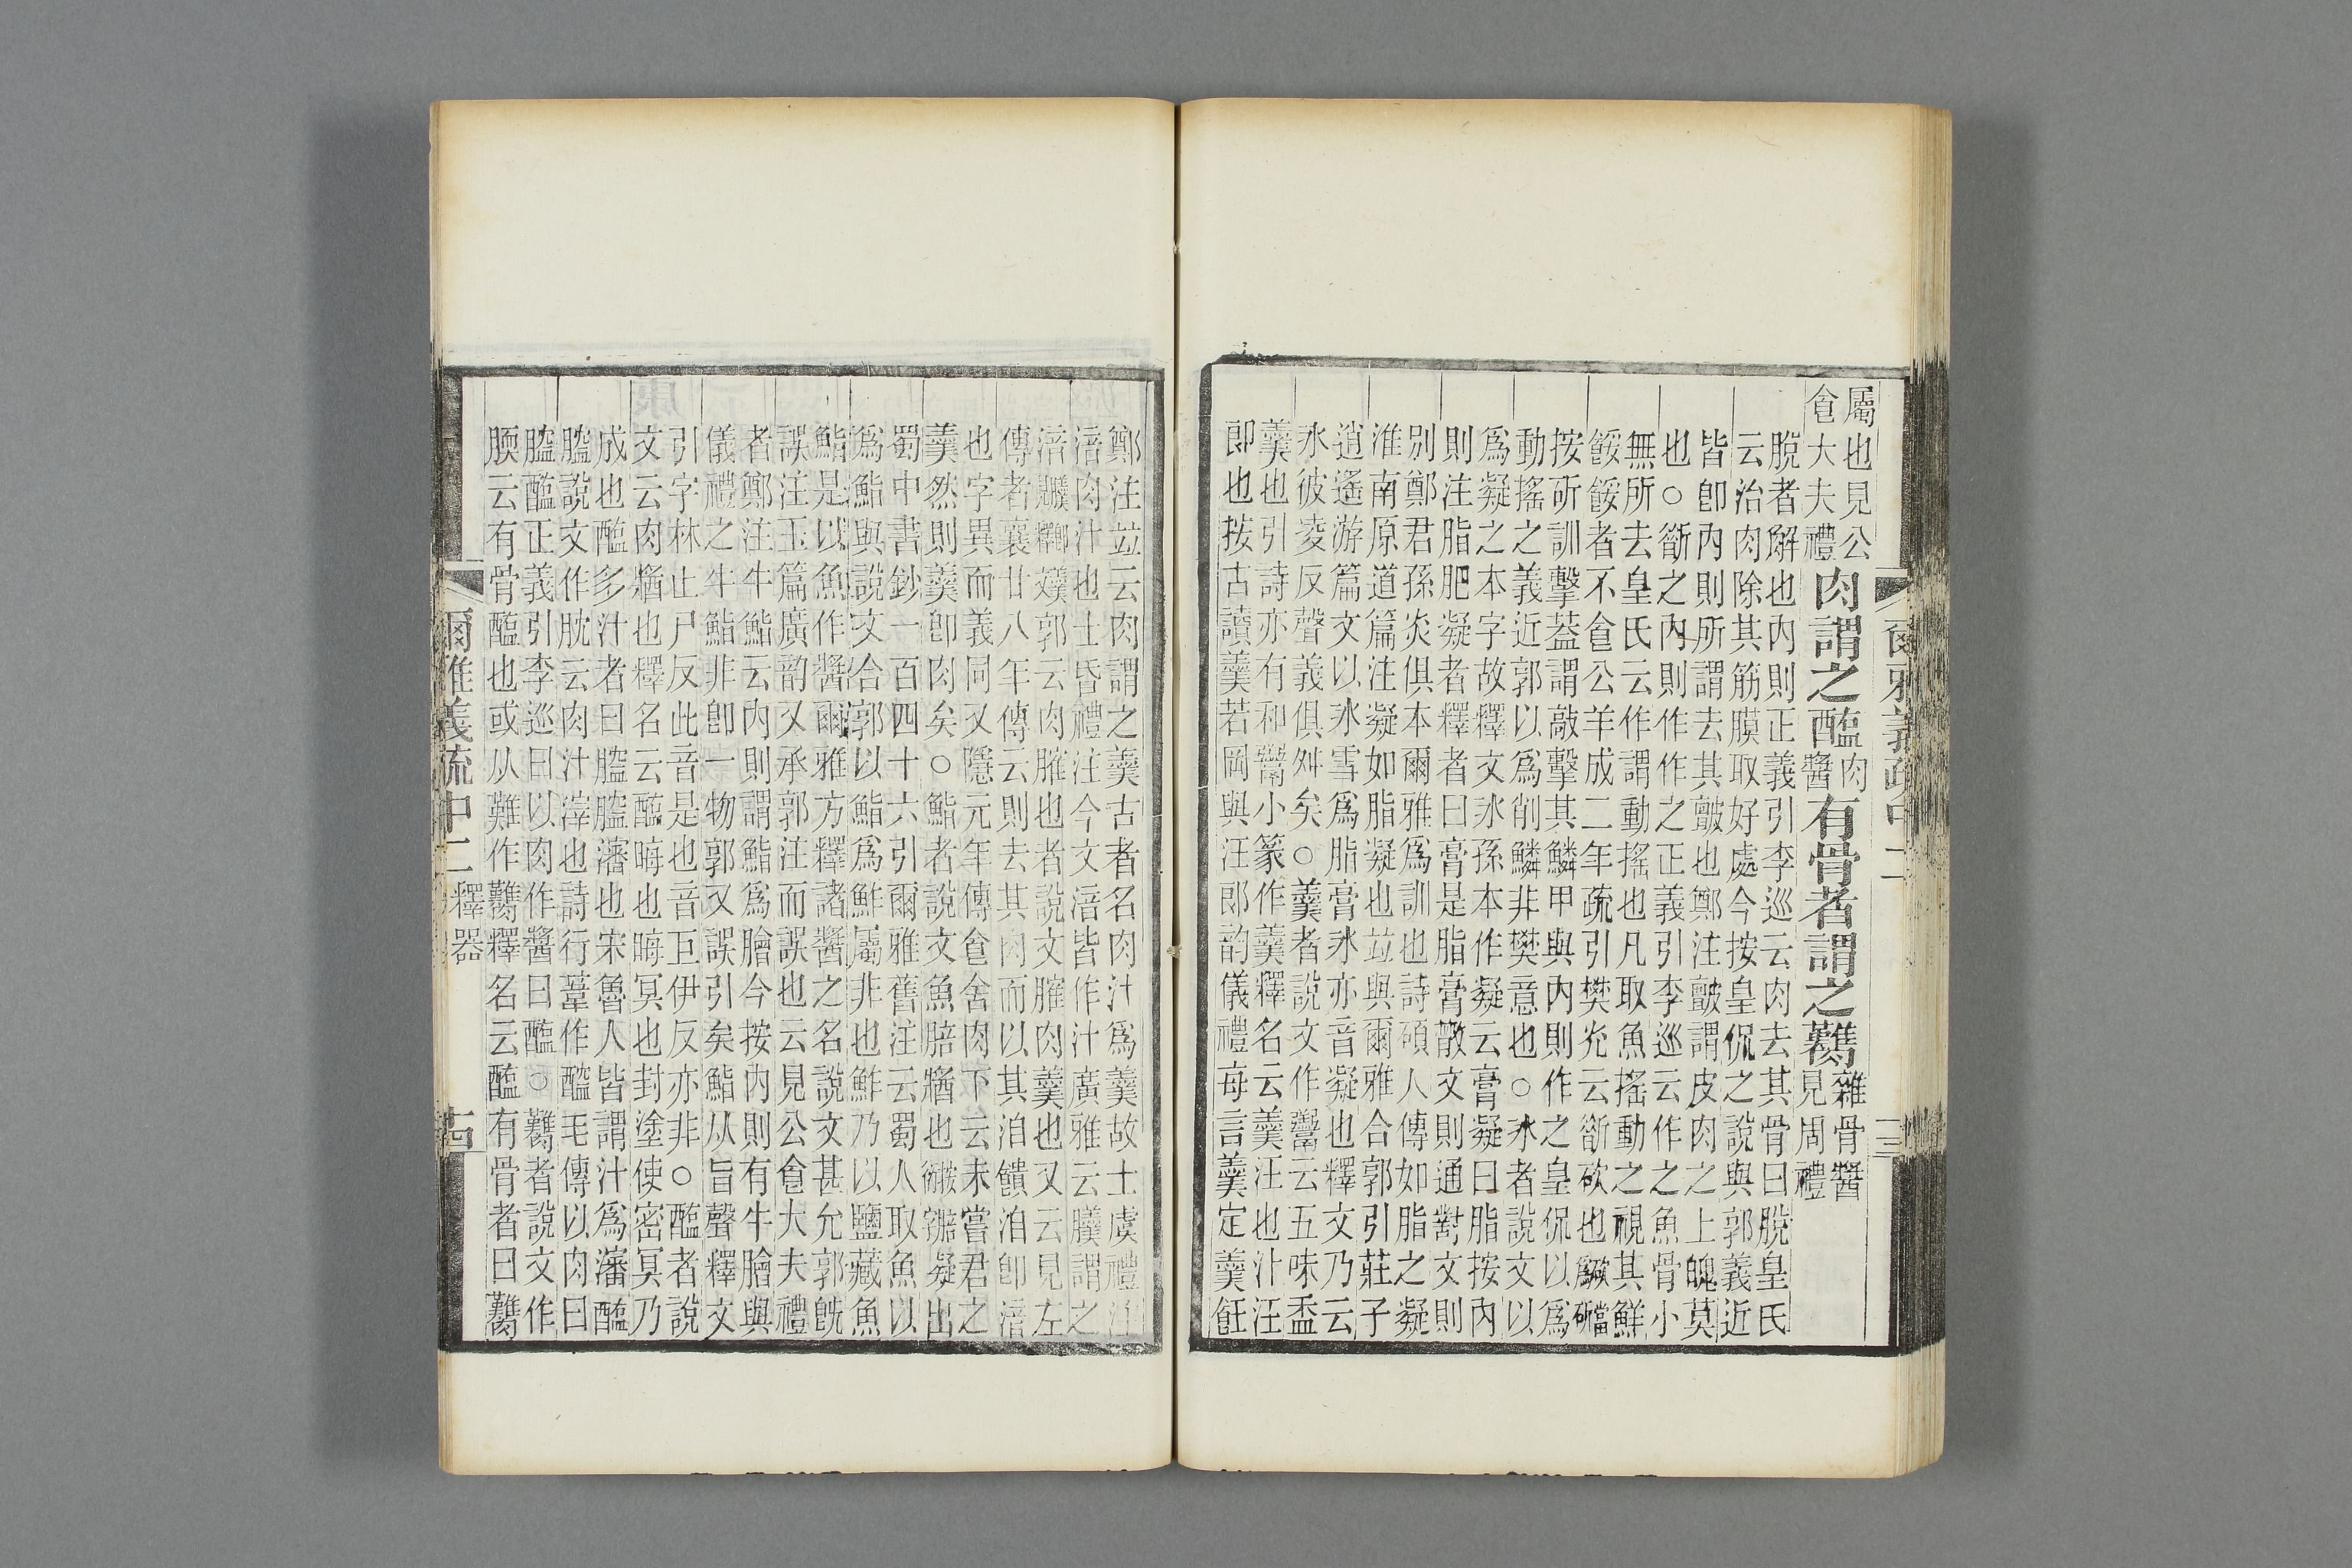 屬也見公
食大夫禮
肉謂之醢
肉
醬
有骨者謂之臡
雜骨醬
見周禮
脫者解也內則正義引李巡云肉去其骨曰脫皇氏
云治肉除其筋膜取好處今按皇侃之說與郭義近
皆卽內則所謂去其皽也鄭注皽謂皮肉之上魄莫
也○斮之內則作作之正義引李巡云作之魚骨小
無所去皇氏云作謂動搖也凡取魚搖動之視其鮮
餒餒者不食公羊成二年疏引樊光云斮砍也
按斫訓擊蓋謂敲擊其鱗甲與內則作之皇侃以爲
動搖之義近郭以爲削鱗非樊意也○冰者說文以
爲凝之本字故釋文冰孫本作凝云膏凝曰脂按內
則注脂肥凝者釋者曰膏是脂膏散文則通對文則
別鄭君孫炎俱本爾雅爲訓也詩碩人傳如脂之凝
淮南原道篇注凝如脂凝也竝與爾雅合郭引莊子
逍遙游篇文以冰雪爲脂膏冰亦音凝也釋文乃云
冰彼凌反聲義俱舛矣○羹者說文作𩱧云五味盉
羹也引詩亦有和𩱧小篆作羹釋名云羹汪也汁汪
郎也按古讀羹若岡與汪郎韵儀禮每言羹定羹飪
爾雅義疏中二
十三
鄭注竝云肉謂之羹古者名肉汁爲羹故士虞禮注
湆肉汁也士昏禮注今文湆皆作汁廣雅云膹謂之
湆 郭云肉臛也者說文臛肉羹也又云見左
傳者襄廿八年傳云則去其肉而以其洎饋洎卽湆
也字異而義同又隱元年傳食舍肉下云未嘗君之
羹然則羹卽肉矣○鮨者說文魚䏽醬也 凝出
蜀中書鈔一百四十六引爾雅舊注云蜀人取魚以
爲鮨與說文合郭以鮨爲鮓屬非也鮓乃以鹽藏魚
鮨是以魚作醬爾雅方釋諸醬之名說文甚允郭旣
誤注玉篇廣韵又承郭注而誤也云見公食大夫禮
者鄭注牛鮨云內則謂鮨爲膾今按內則有牛膾與
儀禮之牛鮨非卽一物郭又誤引矣鮨从旨聲釋文
引字林止尸反此音是也音巨伊反亦非○醢者說
文云肉醬也釋名云醢晦也晦冥也封塗使密冥乃
成也醢多汁者曰醓醓瀋也宋魯人皆謂汁爲瀋醢
醓說文作肬云肉汁滓也詩行葦作醓毛傳以肉曰
醓醢正義引李巡曰以肉作醬曰醢○臡者說文作
腝云有骨醢也或从難作臡釋名云醢有骨者曰臡
爾雅義疏中二 釋器
十四